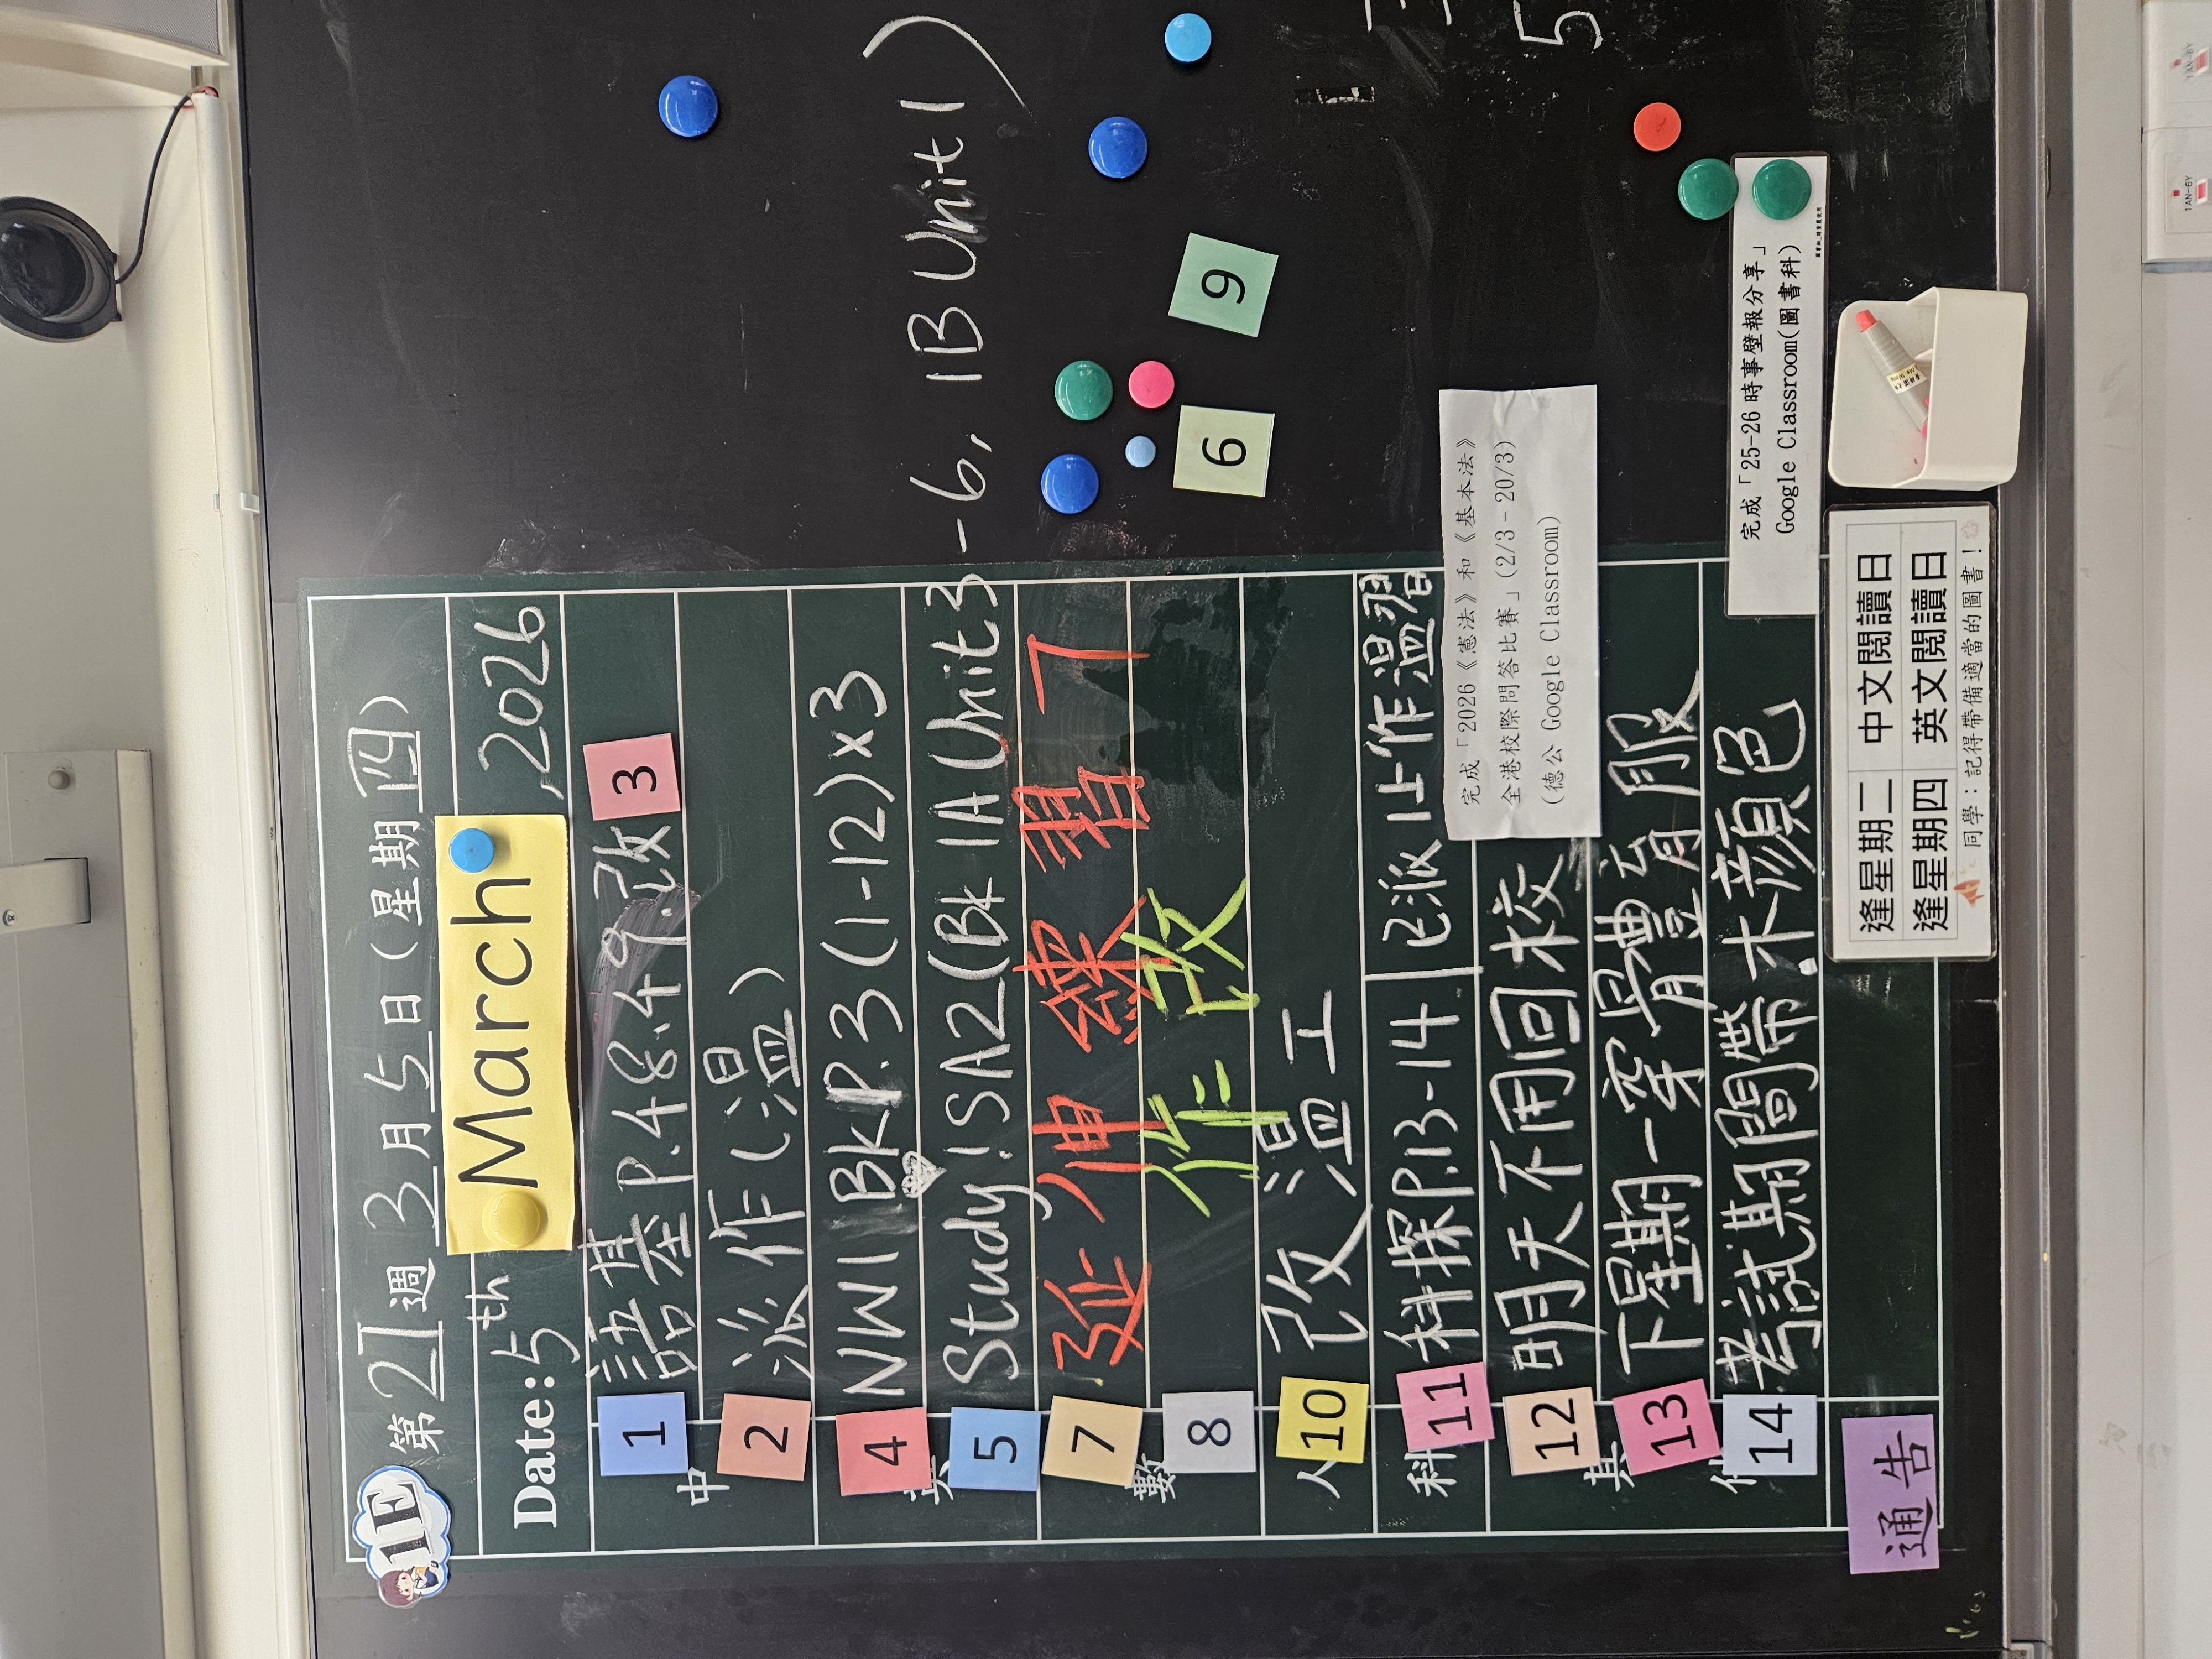 1E 第27週 3月5日(星期四)
Date: 5th March, 2026
中
1 語基P.48.49.改 3
2 派作(溫)
4 NW1 BK P.3 (1-12)x3
5 Study! SA2 (Bk 1A Unit 3-6, 1B Unit 1)
數
7 延伸練習 7
8 作改
人
10 改溫工
科
11 科探P.13-14 已派 上作溫習
12 明天不用回校
其
13 下星期一穿體育服
14 考試期間帶木顏色
通告
6 9
完成「2026《憲法》和《基本法》
全港校際問答比賽」(2/3-20/3)
(德公 Google Classroom)
完成「25-26 時事壁報分享」
Google Classroom(圖書科)
逢星期二 中文閱讀日
逢星期四 英文閱讀日
同學：記得帶備適當的圖書！
5
1AN-6Y